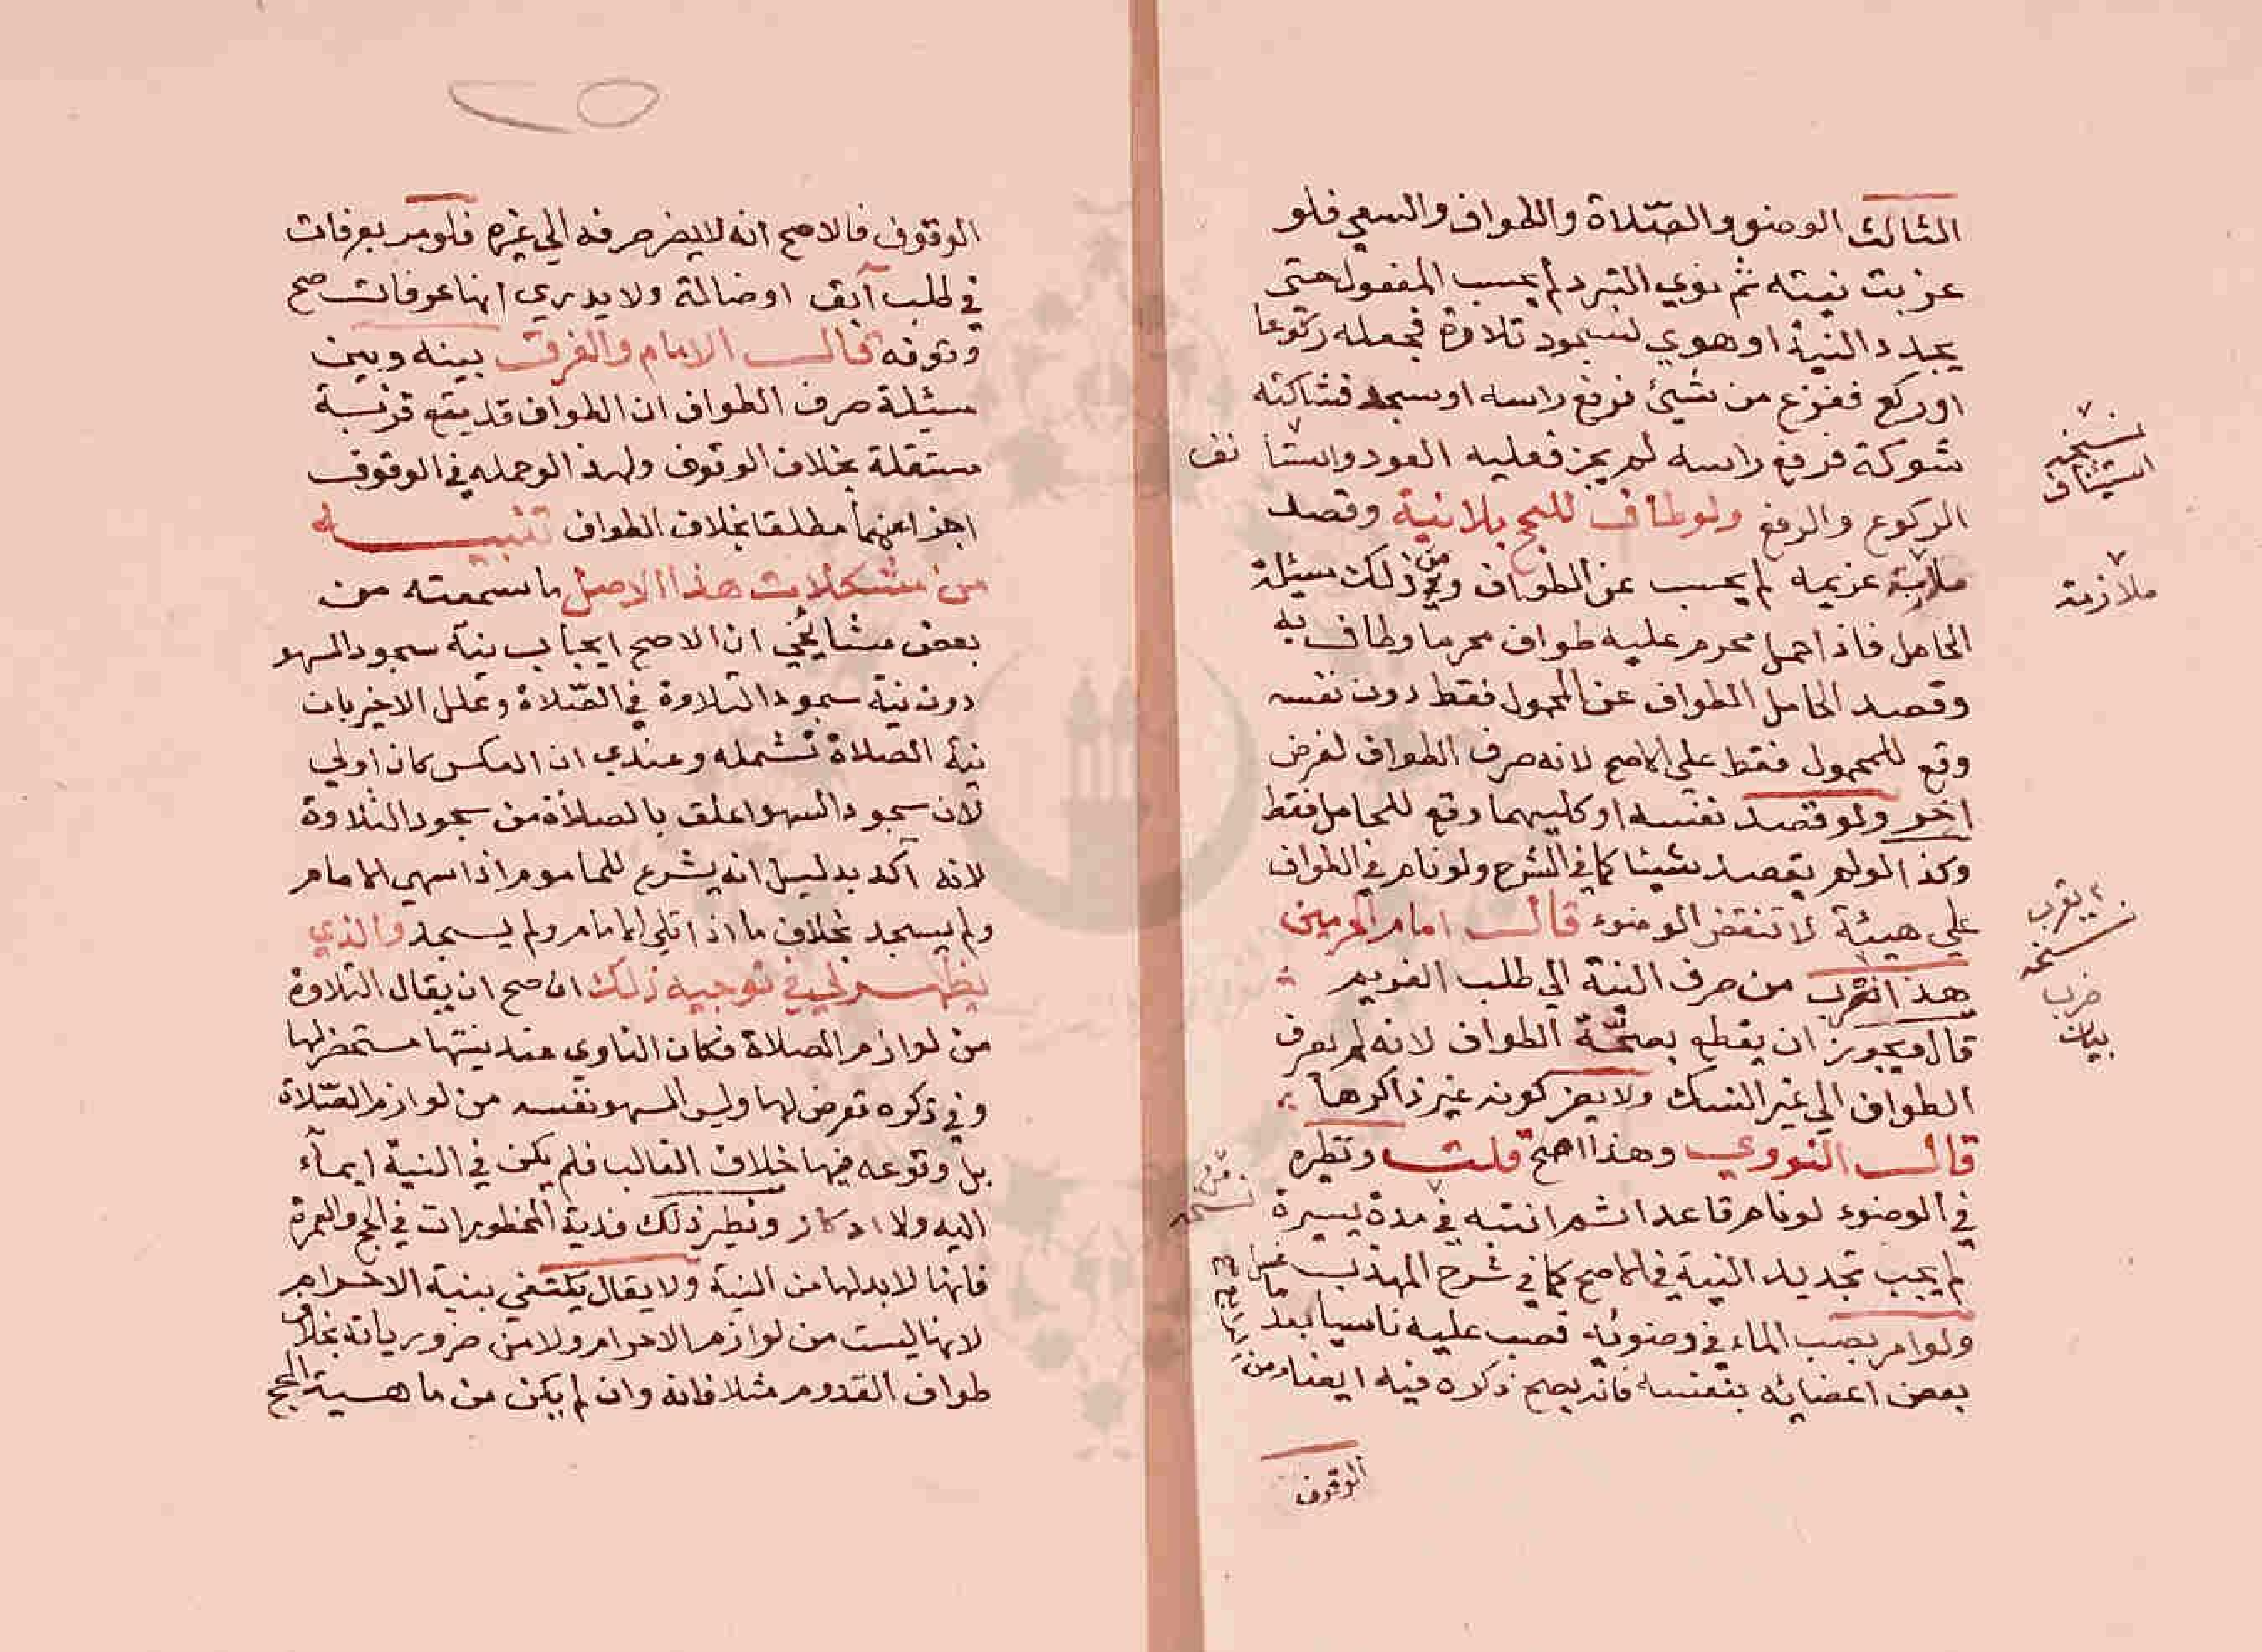 الثالث الوضوء والصّلاة والطواف والسعي فلو
عزبت نيته ثم نوي التبرد لم يحسب المفعول حتى
يجدد النية او هوي لسجود تلاوة فجعله ركوعا
اوركع ففزع من شيئ فرفع راسه او سجد فشاكته
شوكة فرفع راسه لم يجز فعليه العود واستأنف
الركوع والرفع ولو طاف للحج بلا نية وقصد
عزيمه لم يحسب عن الطواف ومن ذلك مسئلة
الحامل فاذا حمل محرم عليه طواف محرما وطاف به
وقصد الحامل الطواف عن المحمول فقط دون نفسه
وقع للمحمول فقط علي الاصح لانه صرف الطواف لغرض
اخر ولو قصد نفسه او كليهما وقع للحامل فقط
وكذا لو لم يقصد شيئا كما في الشرح ولو نام في الطواف
علي هيئة لا تنقض الوضوء قال امام الحرمين
هذا من صرف النية الي طلب الغريم
قال ويجوز ان يقطع بصحّة الطواف لانه لم يصرف
الطواف الي غير النسك ولا يضر كونه غير ذاكرها
قال النووي وهذا اصح قلت ونظيره
في الوضوء لو نام قاعدا ثم انتبه في مدة يسيرة
لم يجب تجديد النية في الاصح كما في شرح المهذب
ولو امر بصب الماء في وضوئه فصب عليه ناسيا بعد غسل
بعض اعضائه بنفسه فانه يصح ذكره فيه ايضا ومن
الوقوف
نسخة
استيناف
ملازمة
يقرب
نسخه
ضرب
بيان
من
نسخه
الوقوف فالاصح انه لا يضر صرفه الي غيره فلو مر بعرفات
في طلب آبق او ضالة ولا يدري انها عرفات صح
وقوفه قال الامام والفرق بينه وبين
مسئلة صرف الطواف ان الطواف قد يقع قربة
مستقلة بخلاف الوقوف ولهذا لو حمله في الوقوف
اجزا عنهما مطلقا بخلاف الطواف تنبيه
من مشكلات هذا الاصل ما سمعته من
بعض مشايخي ان الاصح ايجاب نية سجود السهو
دون نية سجود التلاوة في الصّلاة وعلل الاخير بان
نية الصلاة تشمله وعندي ان العكس كان اولي
لان سجود السهو اعلق بالصلاة من سجود التلاوة
لانه آكد بدليل انه يشرع للماموم اذا سهي الامام
ولم يسجد بخلاف ما اذا تلي الامام ولم يسجد والذي
يظهر لي في توجيه ذلك ان صح ان يقال التلاوة
من لوازم الصلاة فكان الناوي عند نيتها مستحضر لها
وفي ذكره تعرض لها وليس السهو نفسه من لوازم الصّلاة
بل وقوعه فيها خلاف الغالب فلم يكن في النية ايمآء
اليه ولا ادكار ونظير ذلك فدية المحظورات في الحج والعمرة
فانها لا بد لها من النية ولا يقال يكتفي بنية الاحرام
لانها ليست من لوازم الاحرام ولا من ضرورياته بخلاف
طواف القدوم مثلا فانه وان لم يكن من ماهية الحج